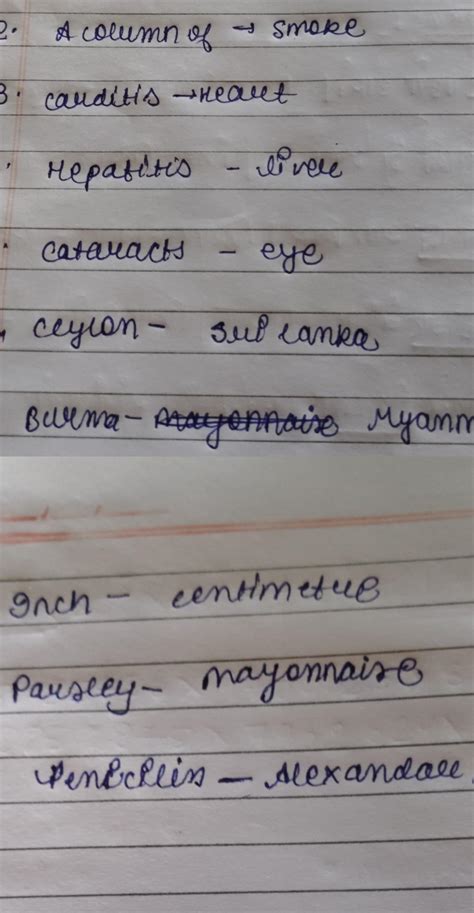 2. A column of → smoke
3. carditis → Heart
. Hepatitis - liver
. cataracts - eye
. Ceylon - Sri Lanka
Burma - mayonnaise Myanm
Inch - centimetre
Parsley - mayonnaise
Penicillin - Alexandare